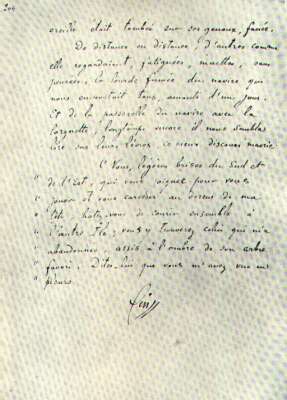 204
oreille était tombée sur ses genoux, fanée.
De distance en distance, d'autres comme
elle regardaient, fatiguées, muettes, sans
pensées, la lourde fumée du navire qui
nous emportait tous, amants d'un jour.
Et de la passerelle du navire avec la
lorgnette, longtemps encore il nous sembla
lire sur leurs lèvres, ce vieux discours maorie
« Vous, légères brises du Sud et
" de l'Est, qui vous joignez pour vous
" jouer et vous caresser au dessus de ma
" tête, hatez vous de courir ensemble à
" l'autre île; vous y trouverez celui qui m'a
" abandonnée assis à l'ombre de son arbre
" favori. Dites lui que vous m'avez vue en
" pleurs.